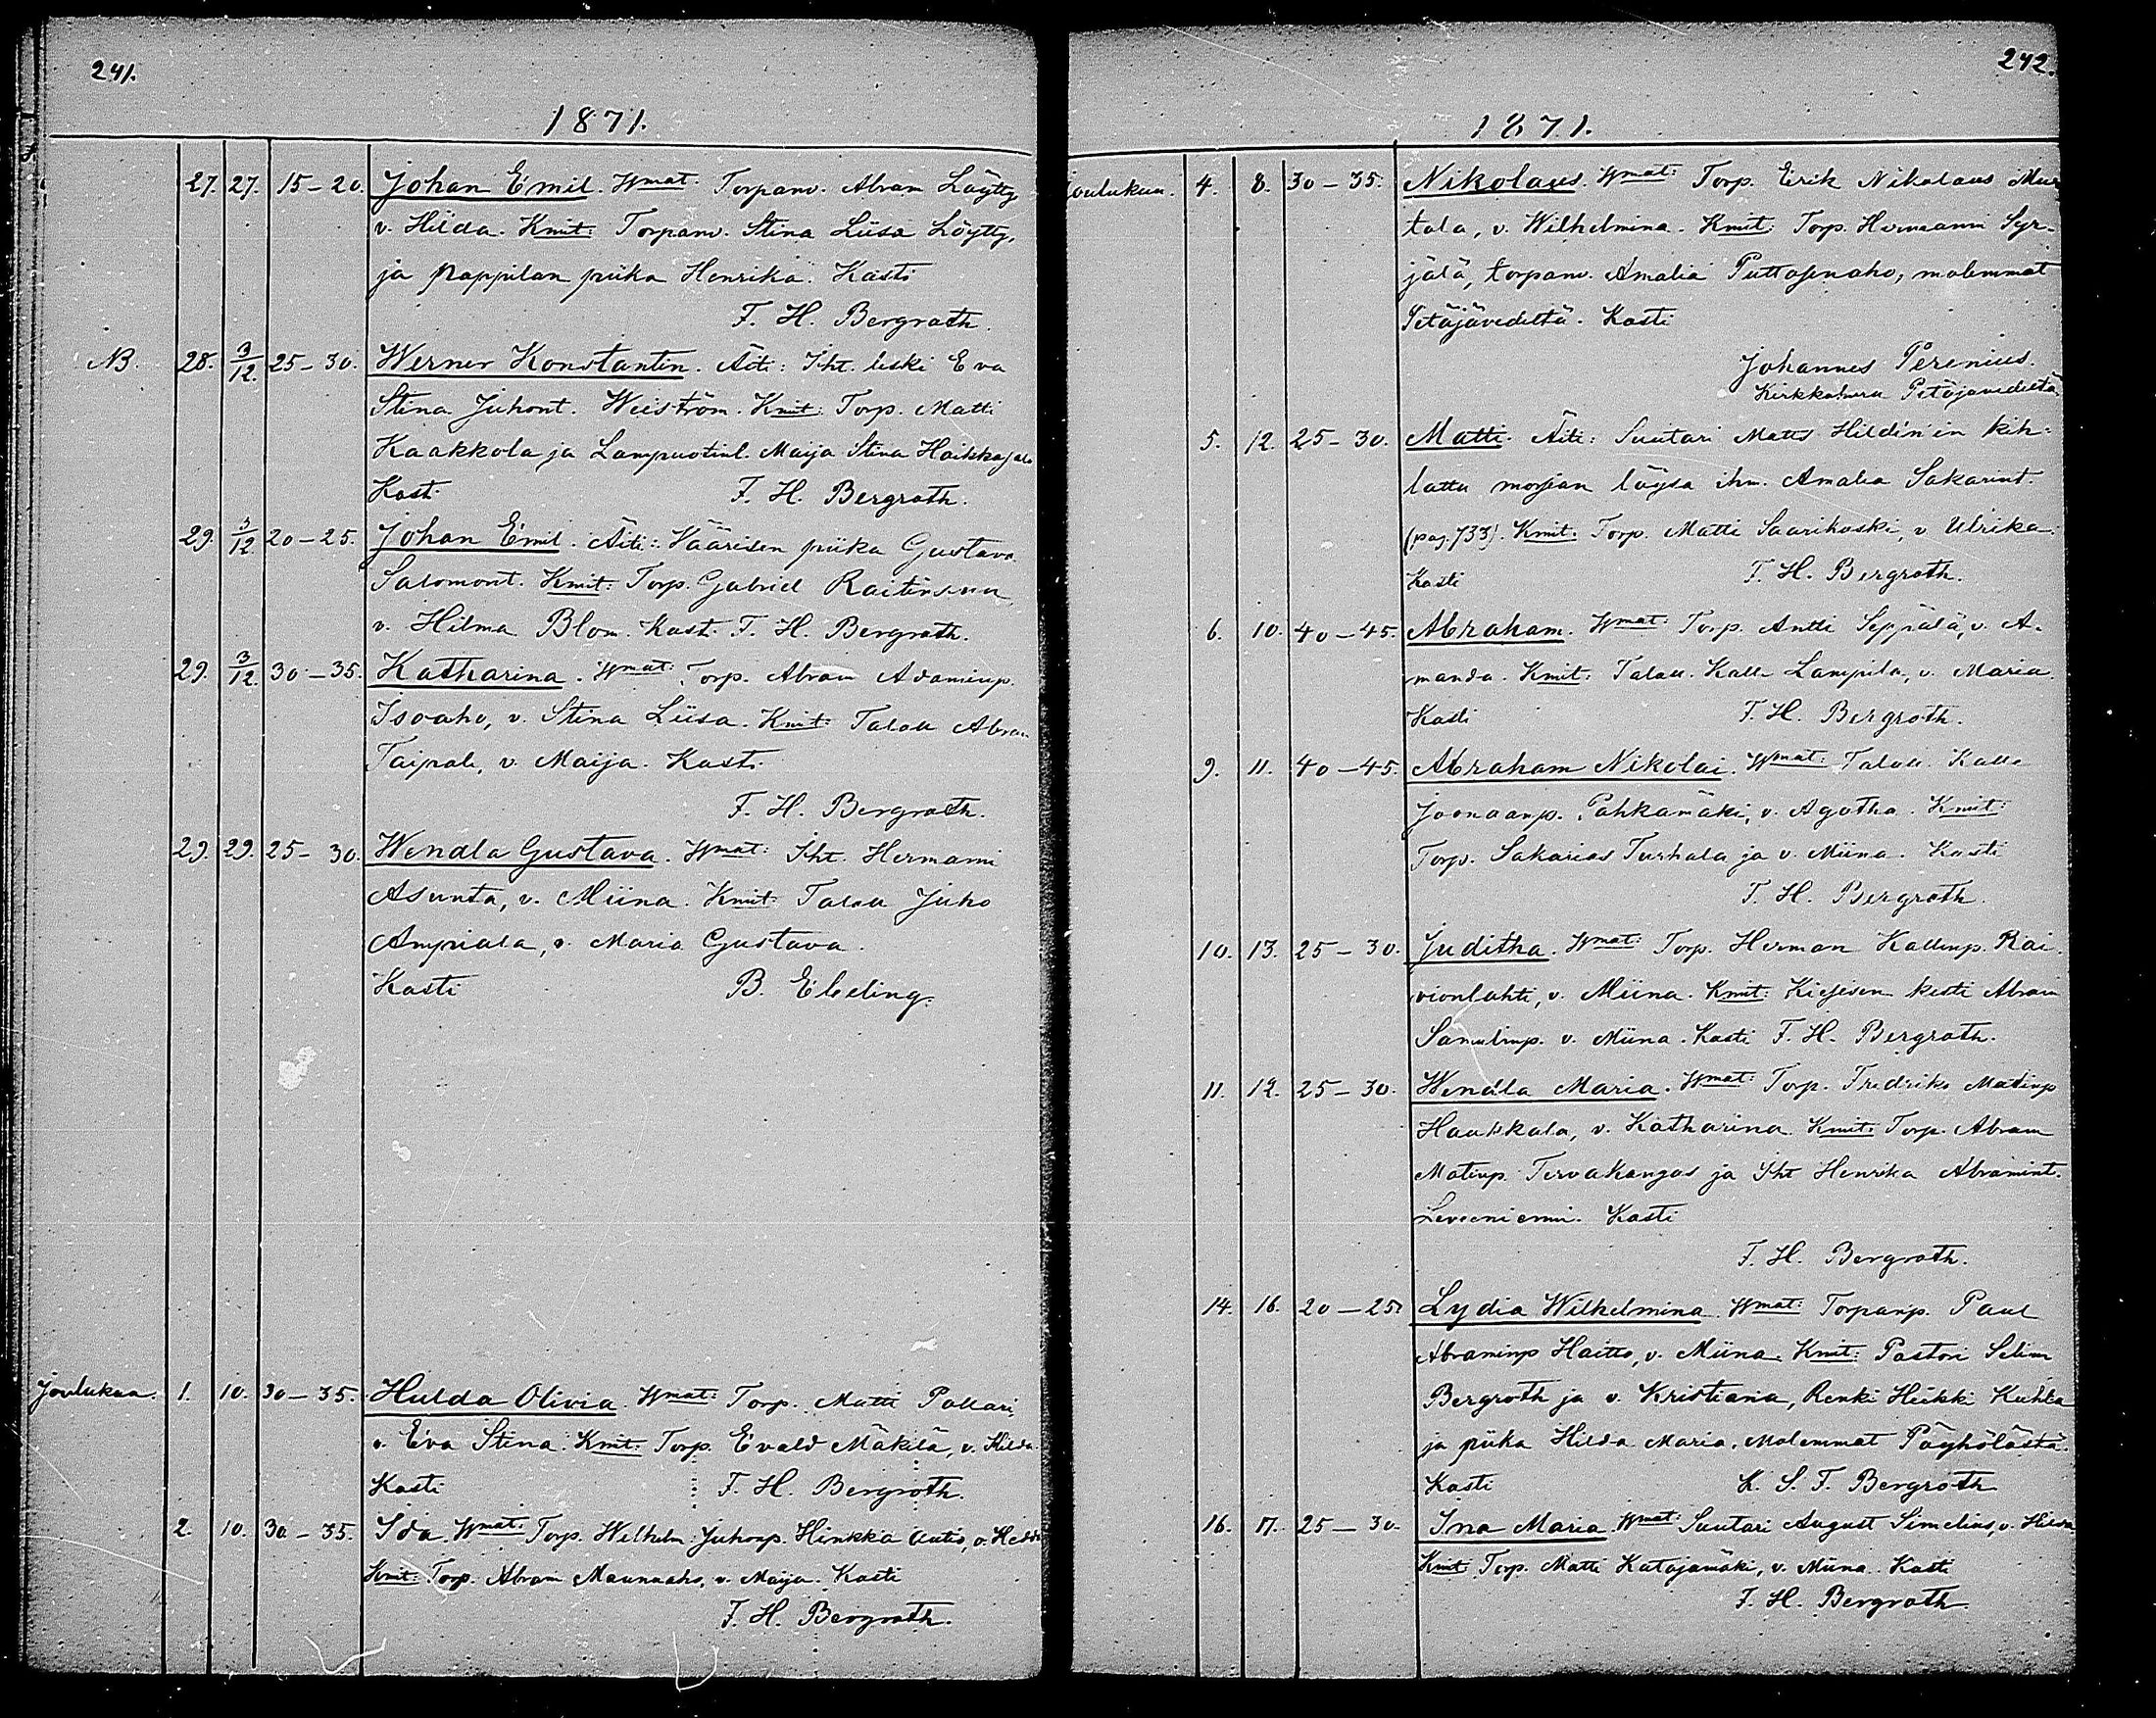 241.
1871.
27. 27. 15-20. Johan Emil. Wmat: Torpanv. Abram Löytty
v. Hilda. Kmit: Torpanv. Stina Liisa Löytty,
ja pappilan piika Henrika. Kasti
F. H. Bergroth.
NB. 28. 3/12. 25-30. Werner Konstantin. Äiti: Iht. leski Eva
Stina Juhont. Weiström. Kmit: Torp. Matti
Kaakkola ja Lampuotinl. Maija Stina
Kasti F. H. Bergroth.
29. 3/12 20-25. Johan Emil. Äiti: Väärisen piika Gustava
Salomont. Kmit: Torp. Gabriel
v. Hilma Blom. Kasti F. H. Bergroth.
29. 3/12. 30-35. Katharina. Wmat: Torp. Abram Adaminp.
Isoaho, v. Stina Liisa. Kmit: Talall Abram
Taipale, v. Maija. Kasti
F. H. Bergroth.
29. 29. 25-30. Wendla Gustava. Wmat: Iht. Hermanni
Asunta, v. Miina. Kmit: Talall Juho
Ampiala, v. Maria Gustava.
Kasti B. Ebeling.
Joulukuu. 1. 10. 30-35. Hulda Olivia. Wmat: Torp. Matti Pallari,
v. Eva Stina. Kmit: Torp. Evald Mäkilä, v. Hilda.
Kasti F. H. Bergroth.
2. 10. 30-35. Ida. Wmat: Torp. Wilhelm Juhonp. Hinkka Autio, v.
Kmit: Torp. Abram Maunuaho, v. Maija. Kasti
F. H. Bergroth.
242.
1871.
Joulukuu. 4. 8. 30-35. Nikolaus. Wmat: Torp. Erik Nikolaus Mur
tala, v. Wilhelmina. Kmit: Torp. Hermanni Syr-
jälä, torpanv. Amalia Puttosenaho, molemmat
Petäjävedeltä. Kasti
Johannes Perenius.
Kirkkoherra Petäjävedeltä
5. 12. 25-30. Matti. Äiti: Suutari Matts Hildin'in kih-
lattu morsian löysä ihm. Amalia Sakarint.
(pag. 733). Kmit: Torp. Matti Saarikoski, v. Ulrika.
Kasti F. H. Bergroth.
6. 10. 40-45. Abraham. Wmat: Torp. Antti Seppälä, v. A-
manda. Kmit: Talall. Kalle Lampila, v. Maria.
Kasti F. H. Bergroth.
9. 11. 40-45. Abraham Nikolai. Wmat: Talall. Kalle
Joonaanp. Pahkamäki, v. Agatha. Kmit:
Torp. Sakarias Turhala ja v. Miina. Kasti
F. H. Bergroth.
10. 13. 25-30. Juditha. Wmat: Torp. Herman Kallenp. Rai-
vionlahti, v. Miina. Kmit: Kiesisen kesti Abram
Samulinp. v. Miina. Kasti F. H. Bergroth.
11. 12. 25-30. Wendla Maria. Wmat: Torp. Fredrik Matinp
Haukkala, v. Katharina. Kmit: Torp. Abram
Matinp. Tervakangas ja Iht Henrika Abramint.
Leveeniemi. Kasti
F. H. Bergroth.
14. 16. 20-25. Lydia Wilhelmina. Wmat: Torpanp. Paul
Abraminp Haitto, v. Miina. Kmit: Pastori Selim
Bergroth ja v. Kristiana, Renki Heikki Kuhla
ja piika Hilda Maria. Molemmat Pöyhölästä.
Kasti K. S. F. Bergroth
16. 17. 25-30. Ina Maria. Wmat: Suutari August Simelius, v. Hilda
Kmit: Torp. Matti Katajamäki, v. Miina. Kasti
F. H. Bergroth